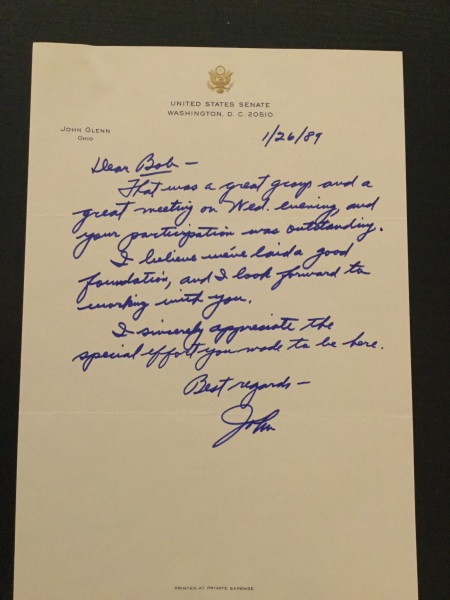 UNITED STATES SENATE
WASHINGTON, D. C. 20510
JOHN GLENN
OHIO
1/26/89
Dear Bob —
That was a great group and a
great meeting on Wed. evening, and
your participation was outstanding.
I believe we've laid a good
foundation, and I look forward to
working with you.
I sincerely appreciate the
special effort you made to be here.
Best regards —
John
PRINTED AT PRIVATE EXPENSE